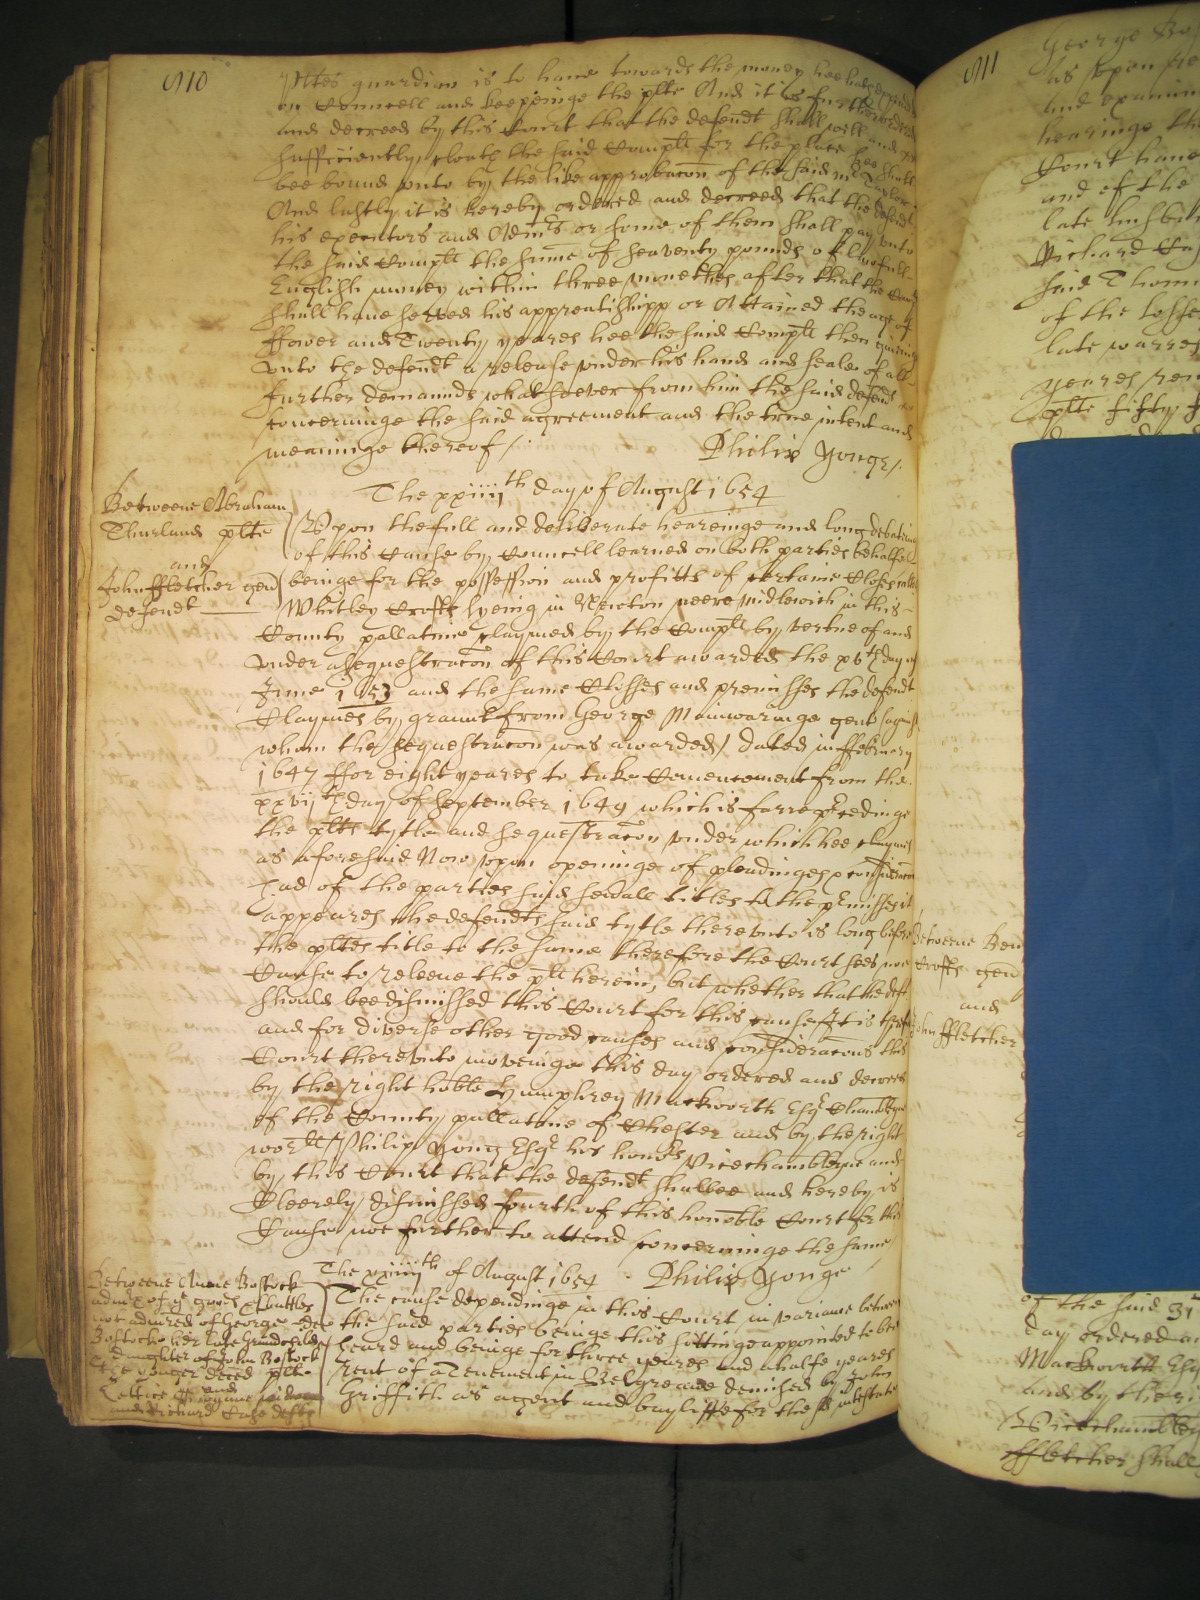 910
pltes guardian is to have towards the money hee hath expended
on Councell and keepeinge the plte And it is further ordered
and decreed by this Court that the defendt shall well and
sufficiently cloath the said Complt for the place hee shall
bee bound unto by the like approbacon of the said mr Taylor
And lastly it is hereby ordered and decreed that the defendt
his executors and Admrs or some of them shall pay unto
the said Complt the summe of seaventy pounds of lawfull
English money within three monethes after that the
shall have served his apprentishipp or Attained the age of
ffower and Twenty yeares hee the said Complt then giveinge
unto the defendt a release under his hand and seale of all
further demaunds whatsoever from him the said defendt
concerninge the said agreement and the true intent and
meaninge thereof /
Philip Yonge /
The xxiiijth day of August 1654
Betweene Abraham
Thurland plte
and
John ffletcher gen
defendt
Upon the full and deliberate heareinge and long debateinge
of this Cause by Councell learned on both parties behalfe
beinge for the possession and profitts of certaine Closes called
Whitley Crofts lyeing in Newton neere midlewich in this
County pallatine claymed by the Complt by vertue of and
under a sequestracon of this Court awarded the xvth day of
June 1653 and the same Closses and premisses the defendt
Claymes by graunt from George Mainwaringe gent against
whom the sequestracon was awarded / dated in ffebruary
1647 ffor eight yeares to take Comencement from the
xxvijth day of September 1649 which is farre precedinge
the pltes tytle and sequestracon under which hee claymes
as aforesaid Now upon openinge of pleadinges & consideracon
had of the parties said seuall titles to the premisses it
appeares the defendts said tytle thereunto is long before
the pltes title to the same therefore the Court sees noe
Cause to releeve the plt herein, but whether that the deft
should bee dismissed this Court for this cause It is
and for diverse other good causes and consideracons this
Court thereunto moveinge this day ordered and decreed
by the right hoble Humphrey Mackworth Esqr Chamblyne
of the County pallatine of Chester and by the right
worll Philip Yong Esqr his honors Vicechamblyne and
by this Court that the defendt shalbee and hereby is
Cleerely dismissed fourth of this honoble Court for this
Cause not further to attend concerninge the same
Philip Yonge
The xxiiijth of August 1654
Betweene Anne Bostock
admx of ye goods & chattles
not admred of George
Bostocke her late Grandchilde
daughter of John Bostock
the yonger decd plte
and
and Richard Case defts
The cause dependinge in this Court in variance betweene
the said parties beinge this sittinge appointed to bee
heard and beinge for three yeares and a halfe yeares
Rent of a Tenement in Belgreave demised by John
Griffith as agent and bayliffe for the sd intestate
911
as
and
hearinge the
Court have
and of the
late
Richard
said Thom
of the
late warres
yeares
plte fifty
Betweene
Crofts gen
and
John ffletcher
of the said
day ordered
Mackworth Esq
and by the
Vicechamble
ffletcher shall